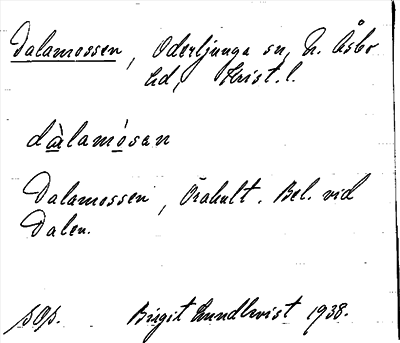 Dalamossen, Oderljunga sn, N. Åsbo
hd, Krist. l.
dàlamósan
Dalamossen, Örahult. Bel. vid
Dalen.
sOp. Birgit Lundkvist 1938.